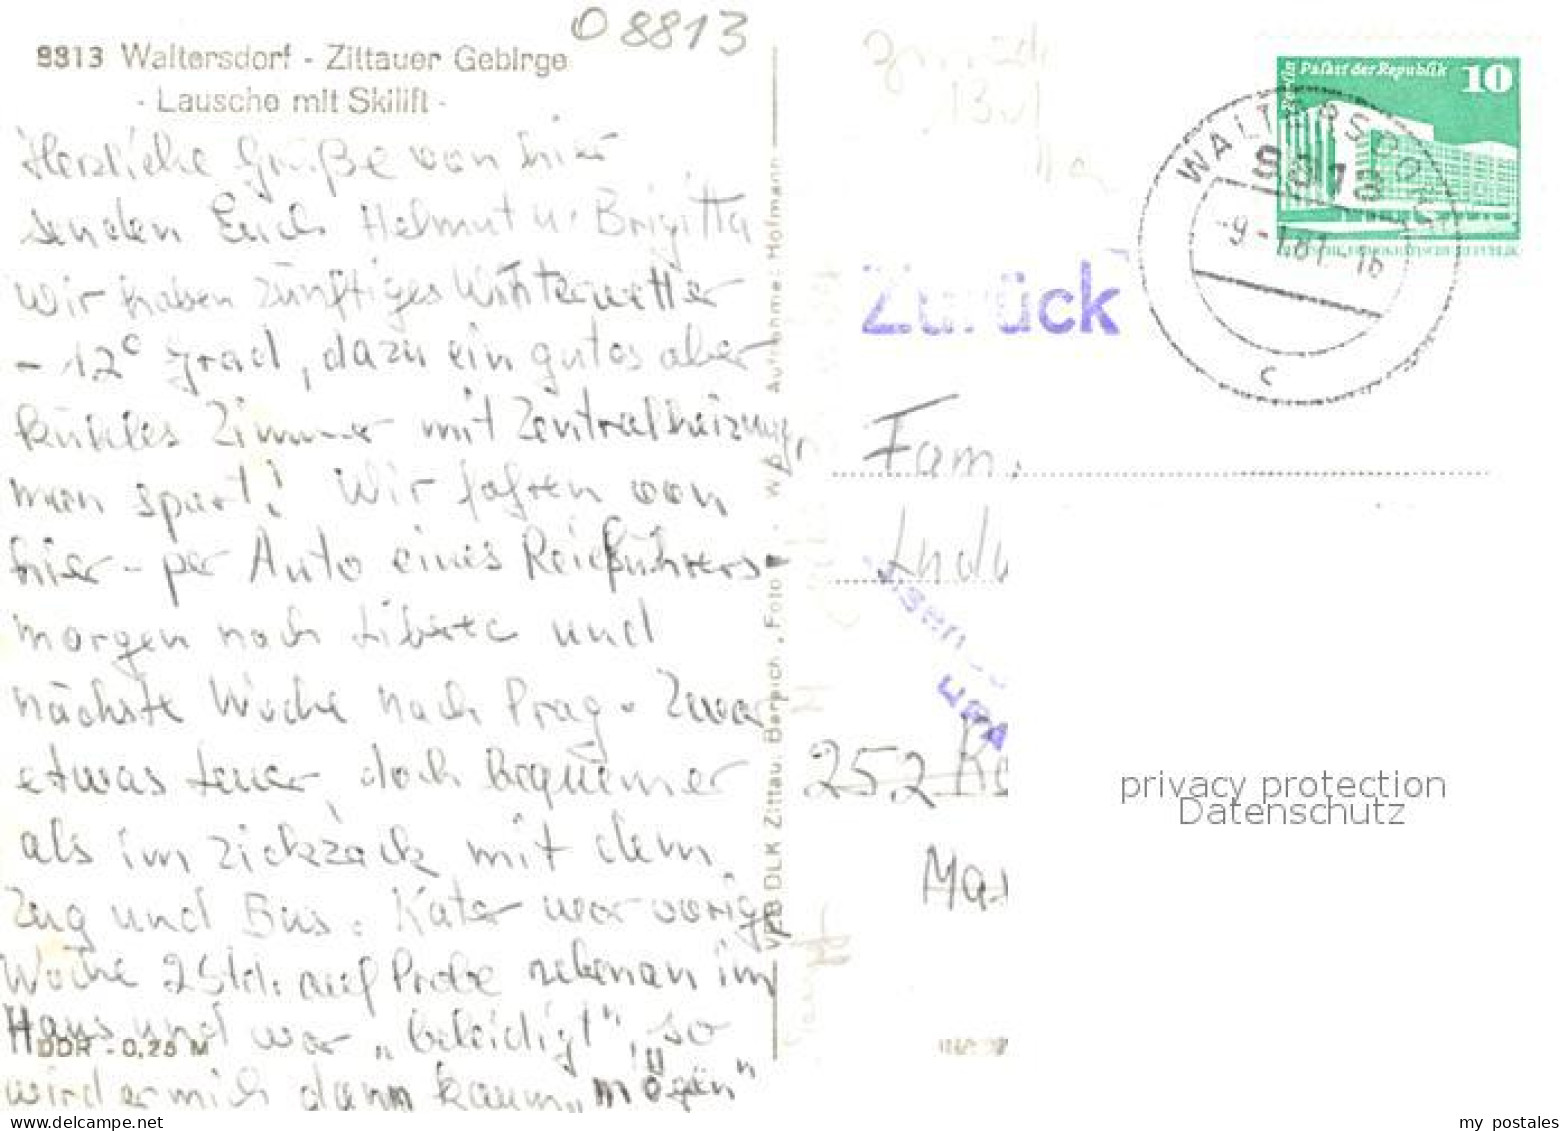 O 8813
8813 Waltersdorf - Zittauer Gebirge
- Lausche mit Skilift -
Herzliche Grüße von hier
senden Euch Helmut u. Brigitta
Wir haben zünftiges Winterwetter
- 12° grad, dazu ein gutes aber
kühles Zimmer mit Zentralheizung,
man spart! Wir fahren von
hier - per Auto eines Reiseführers -
morgen nach Liberec und
nächste Woche nach Prag. Zwar
etwas teuer, doch bequemer
als im zickzack mit dem
Zug und Bus. Kater war vorige
Woche 2 Std. auf Probe nebenan im
Haus und war „beleidigt", so
wird er mich dann kaum „mögen"
DDR - 0,25 M
VEB DLK Zittau: Bereich „Foto
Aufnahme: Hofmann
Berlin Palast der Republik 10
WALTERSDORF
8813
-9.-1.81-16
c
Zurück
Fam.
252 Ro
Mar
privacy protection
Datenschutz
www.delcampe.net
my_postales